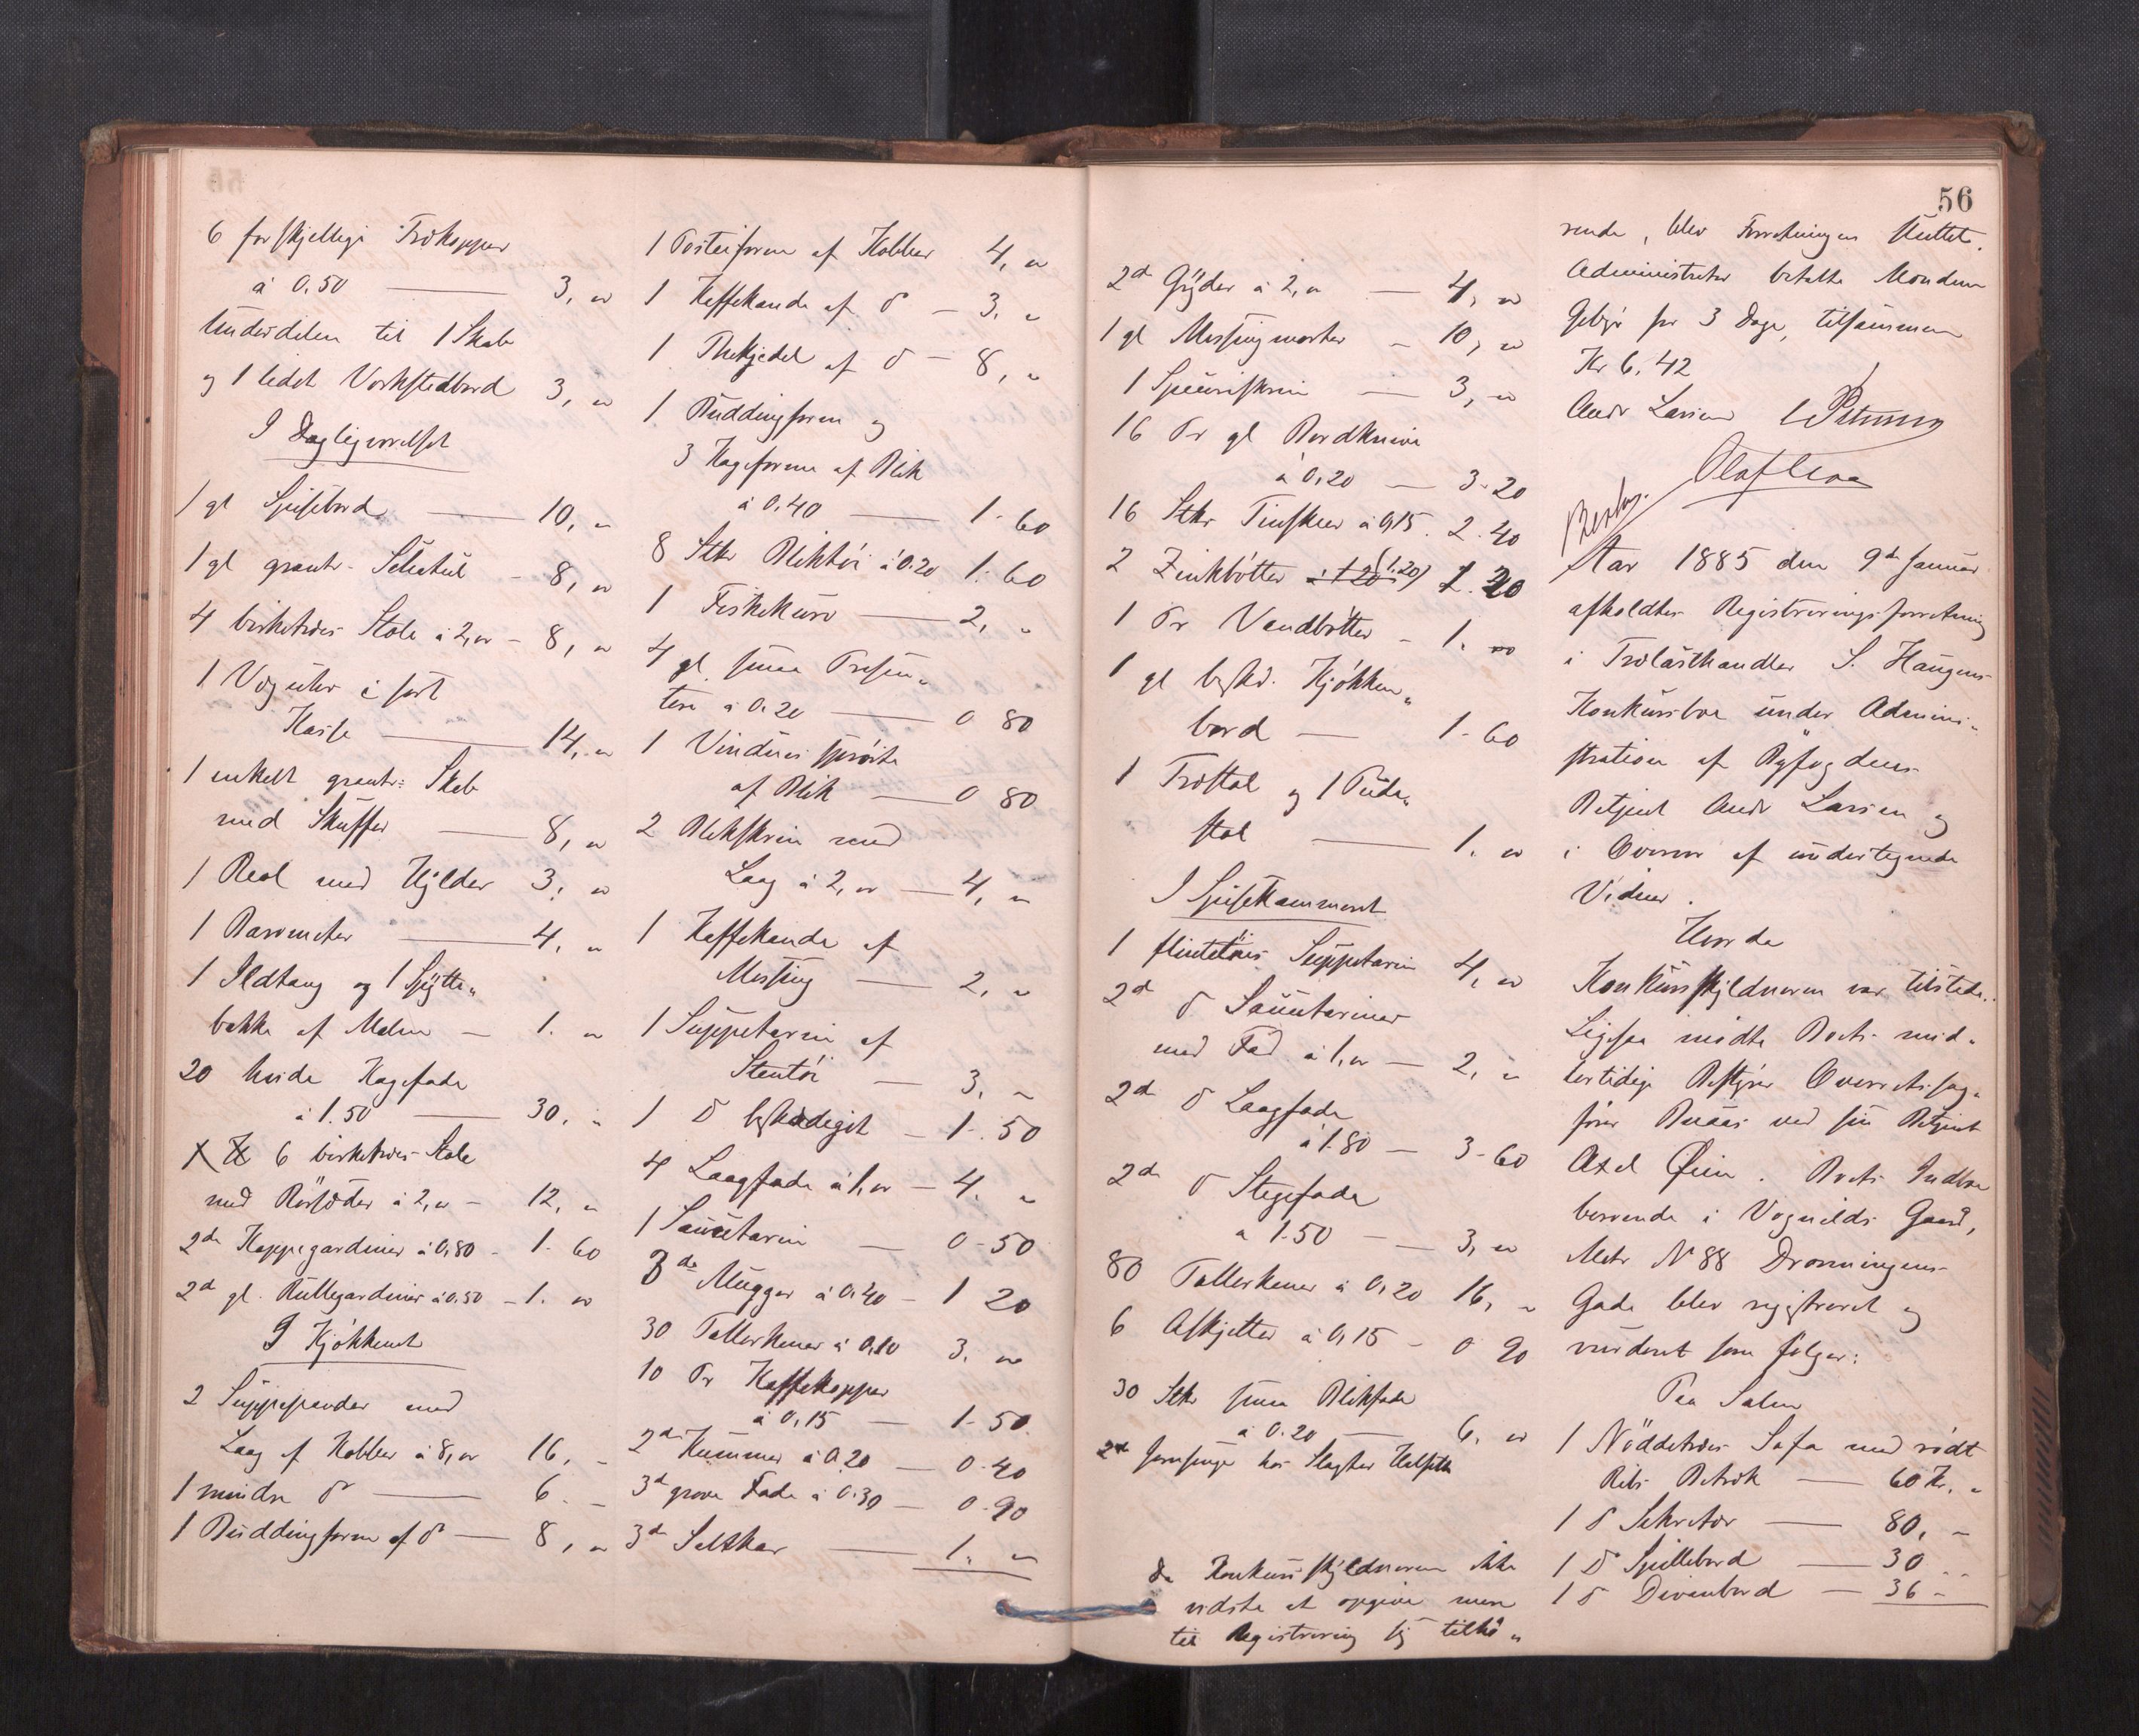 6 forskjellige Trækopper
à 0.50 — 3, "
Underdelen til 1 Skab
og 1 lidet Værkstedbord 3, "
I Dagligværelset
1 gl Spisebord — 10, "
1 gl grantr. - 8, "
4 birketræes Stole à 2, " - 8, "
1 Væguhr i sort
Kasse — 14, "
1 enkelt grantr= Skab
med Skuffer — 8, "
1 Reol med Hylder 3, "
1 Barometer — 4, "
1 Ildtang og 1 Spytte„
bakke af Malm — 1. "
20 hvide Kagefade
à 1.50 — 30, "
6 birketræes Stole
med Rørsæder à 2, " - 12, "
2de Kappegardiner à 0,80 - 1. 60
2d gl. Rullegardiner à 0.50 - 1. "
I Kjøkkenet
2 Suppepander med
Laag af Kobber à 8, " 16, "
1 mindre do — 6. "
1 Buddingform af do — 8, "
1 Posteiform af Kobber 4, "
1 Kaffekande af do - 3, "
1 Thekjedel af do - 8, "
1 Buddingform og
3 Kageforme af Blik
à 0,40 — 1- 60
8 Stkr Bliktøi à 0.20 1. 60
1 Fiskekurv — 2, "
4 gl. smaa Presen„
tere à 0.20 — 0 80
1 Vindues sprøite
af Blik — 0 80
2 Blikskrin med
Laag à 2, " — 4, "
1 Kaffekande af
Messing — 2, "
1 Suppeterin af
Stentøi — 3, "
1 do beskadiget - 1-.50
4 Laagfade à 1, " - 4. "
1 Sauceterin — 0-50
3de Mugger à 0.40 - 1 20
30 Tallerkener à 0,10 3. "
10 Pr Kaffekopper
à 0,15 — 1-50
2de Kummer à 0.20 — 0-40
3d grove Fade à 0.30 — 0-90
3de Saltkar — 1. "
56
2de Gryder à 2, " — 4, "
1 gl Messingmorter - 10, "
1 — 3, "
16 Pr gl Bordknive
à 0,20 — 3-20
16 Stkr Tinskeer à 0,15. 2.40
2 Zinkbøtter à 1 20 (1.20) 2.20
1 Pr Vandbøtter - 1. "
1 gl besk. Kjøkken„
bord — 1-60
1 Træstol og 1 Pude„
stol — 1. "
I Spisekammeret
1 flintetøies Suppeterin 4, "
2de do Sauceteriner
med Fad à 1, " - 2, "
2de do Laagfade
à 1.80 — 3-60
2de do Stegefade
à 1.50 — 3, "
80 Tallerkener à 0,20 16, "
6 Asjetter à 0,15 - 0 90
30 Stkr smaa Blikfade
à 0.20 — 6, "
2de Jernsenge hos Slagter
Da Konkursskyldneren ikke
vidste at opgive mere
til Registrering sig tilhø„
rende, blev Forretningen sluttet.
Administrator betalte Mændene
Gebyr for 3 Dage, tilsammen
Kr 6,42
Andr Larsen
Aar 1885 den 9de Januar
afholdtes Registreringsforretning
i Trælasthandler S. Haugens
Konkursbo under Admini„
stration af Byfogdens
Betjent Andr Larsen og
i Overvær af undertegnede
Vidner.
Hvorda
Konkursskyldneren var tilstede.
Ligesaa mødte Boets mid„
lertidige Bestyrer Overretssag„
fører Buaas ved sin Betjent
Axel Øien. Boets Indbo
beroende i Vognilds Gaard,
Matr No 88 Dronningens
Gade blev registreret og
vurderet som følger:
Paa Salen
1 Nøddetræes Sofa med rødt
Rips Betræk — 60 Kr. "
1 do Sekretær — 80, "
1 do Spillebord — 30 "
1 do Divanbord — 36 "